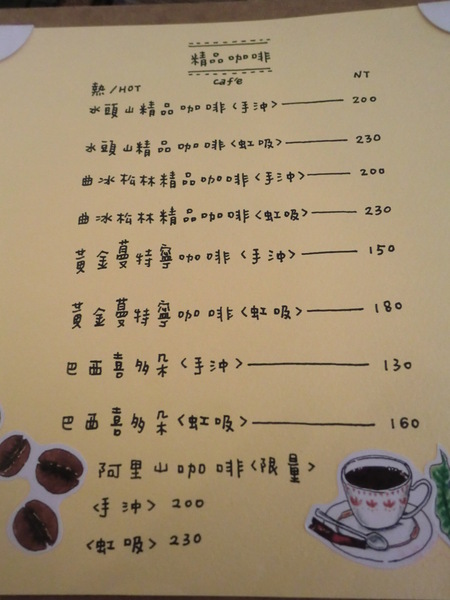 精品咖啡
cafe
NT
熱/HOT
水頭山精品咖啡<手沖>——200
水頭山精品咖啡<虹吸>——230
曲冰松林精品咖啡<手沖>——200
曲冰松林精品咖啡<虹吸>——230
黃金蔓特寧咖啡<手沖>——150
黃金蔓特寧咖啡<虹吸>——180
巴西喜多朵<手沖>——130
巴西喜多朵<虹吸>——160
阿里山咖啡<限量>
<手沖> 200
<虹吸> 230